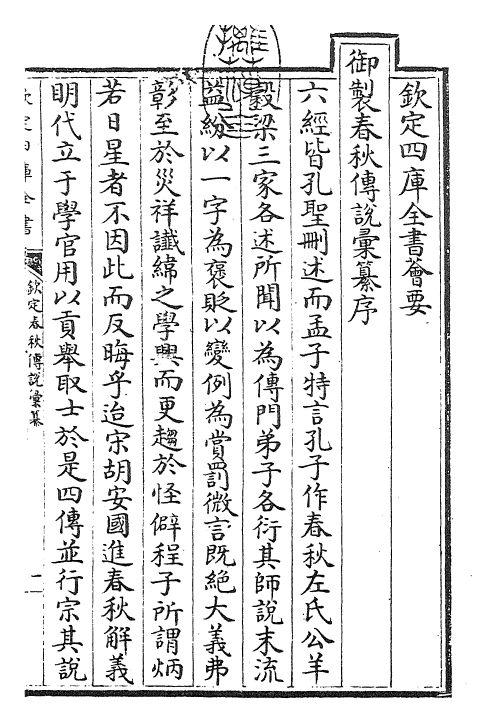 欽定四庫全書薈要
御製春秋傳說彙纂序
六經皆孔聖刪述而孟子特言孔子作春秋左氏公羊
穀梁三家各述所聞以為傳門弟子各衍其師說末流
益紛以一字為褒貶以變例為賞罰微言既絕大義弗
彰至於災祥讖緯之學興而更趨於怪僻程子所謂炳
若日星者不因此而反晦乎迨宋胡安國進春秋解義
明代立于學官用以貢舉取士於是四傳並行宗其說
欽定四庫全書
欽定春秋傳說彙纂
二